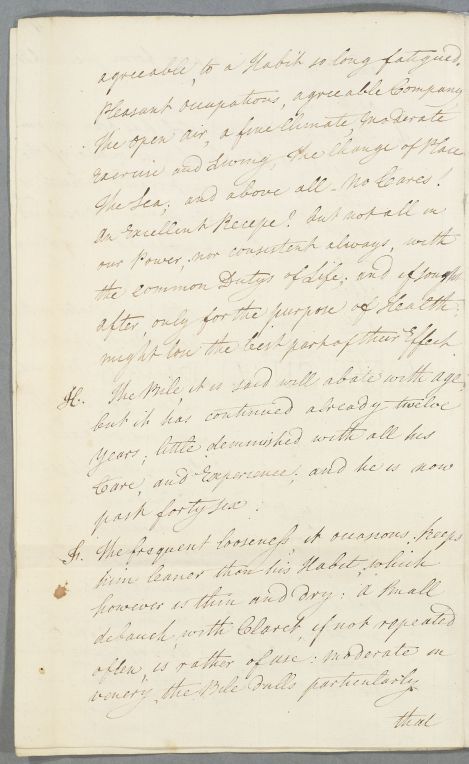 agreeable, to a Habit so long fatigued.
Pleasant occupations, agreeable Company
The open air, a fine Climate, moderate
Exercise and Living, the Change of Place
The Sea; and above all – No Cares!
An Excellent Recepe! but not all in
our Power, nor consistent always, with
the common Dutys of Life; and if sought
after, only for the purpose of Health:
might lose the best part of their Effect.
H. The Bile, it is said will abate with age
but it has continued already twelve
years; little deminished with all his
Care, and Experience; and he is now
past forty six:
I. The frequent looseness, it occasions, keeps
him leaner than his Habit, which
however is thin and dry: a small
debauch, with Claret, if not repeated
often, is rather of use: moderate in
venery, the Bile dulls particularly
that